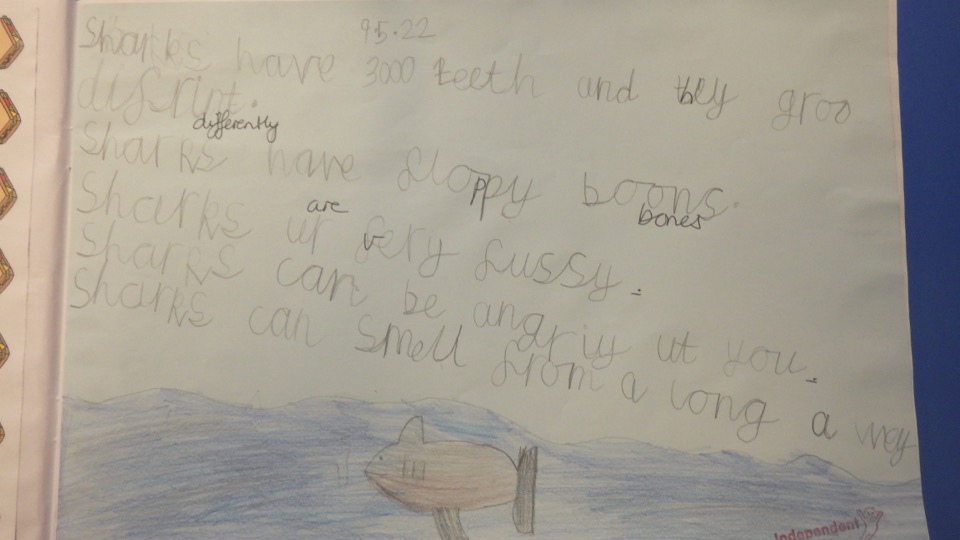 95.22
Sharks have 3000 teeth and they groo
difrint.
differently
Sharks have floppy boons.
bones
Sharks ur very fussy.
are
Sharks can be angriy ut you.
Sharks can smell from a long a way
Independent